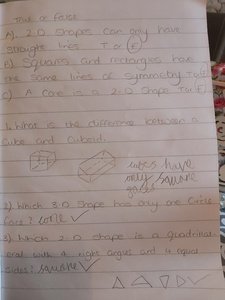 True or False
A). 2-D Shapes can only have
straight lines T or F
B) Squares and rectangles have
the same lines of symmetry T or F
C) A Cone is a 2-D Shape T or F
1. What is the difference between a
Cube and Cuboid.
cubes have
only square
faces
2) Which 3-D Shape has only one Circle
Face? cone ✓
3) Which 2-D shape is a quadrilat-
eral with 4 right angles and 4 equal
sides? square ✓